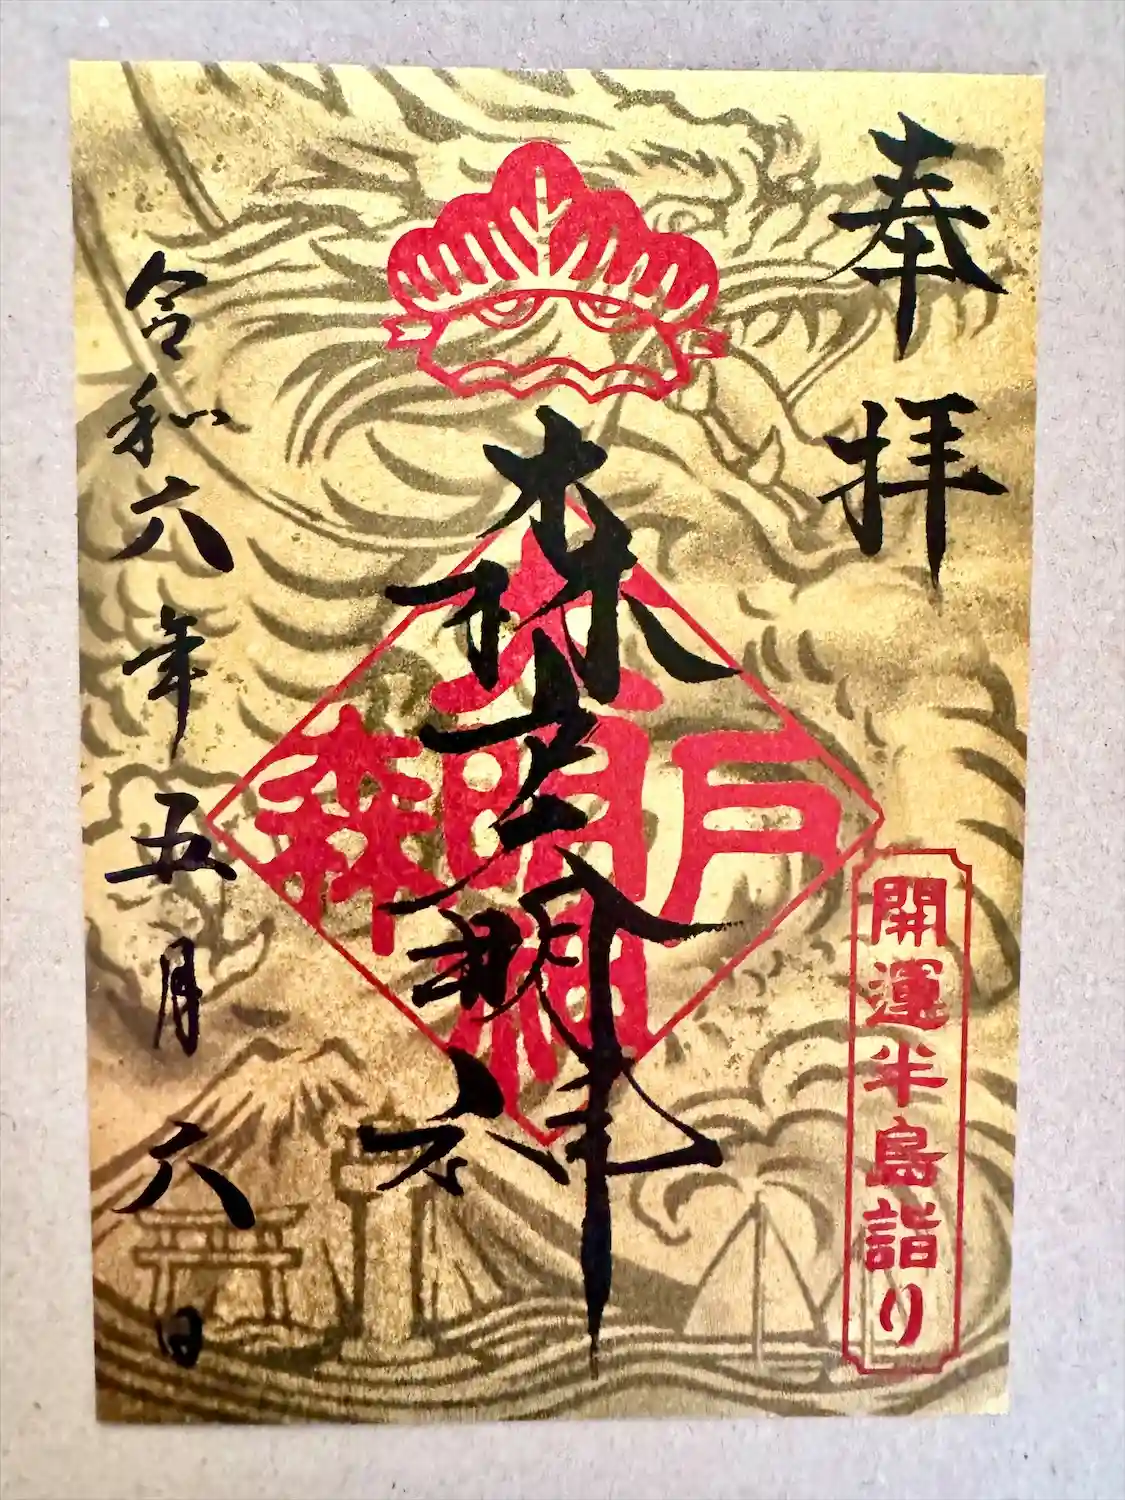 奉拝
開運半島詣り
森戸大明神
森戸大明神
令和六年五月六日